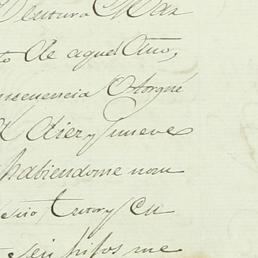 Escritura
to de aquel Año,
nsecuencia Otorgué
diez y nueve
habiendome nom
Tutor y Cu
seis hijos me